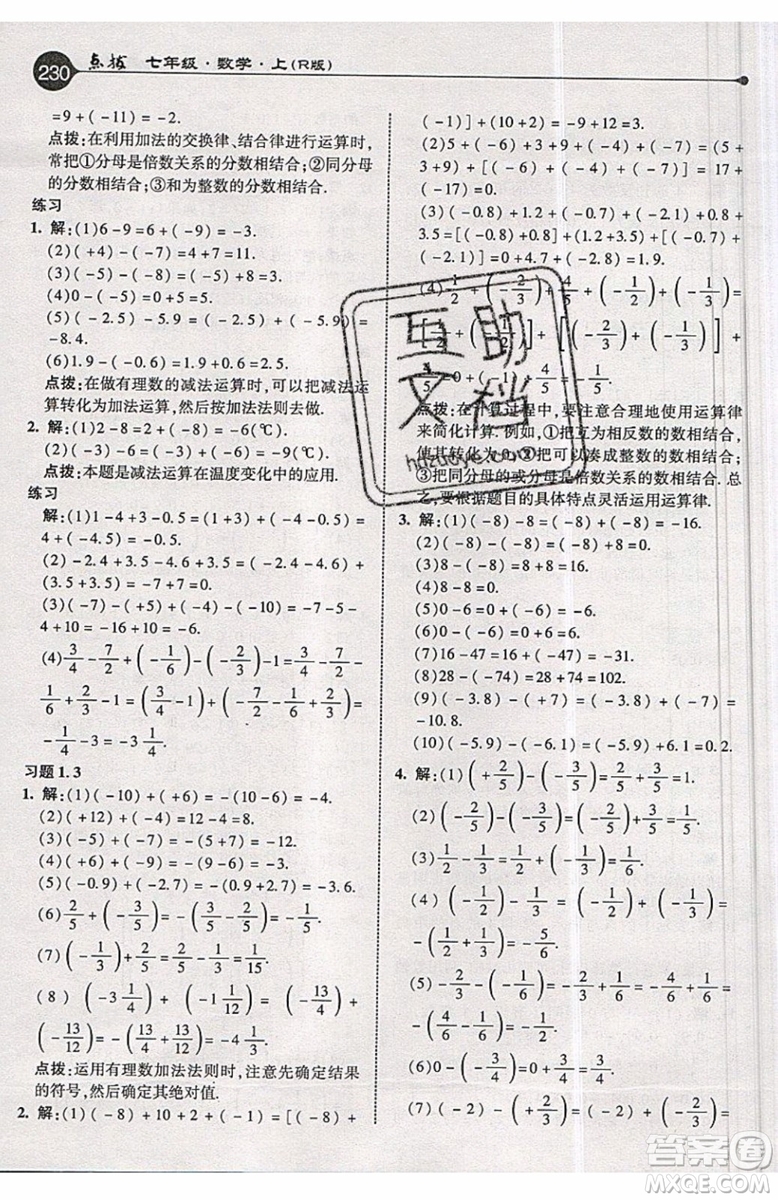 230 点拨 七年级·数学·上(R版)
=9+(-11)=-2.
点拨:在利用加法的交换律、结合律进行运算时,
常把①分母是倍数关系的分数相结合;②同分母
的分数相结合;③和为整数的分数相结合.
练习
1. 解:(1)6-9=6+(-9)=-3.
(2)(+4)-(-7)=4+7=11.
(3)(-5)-(-8)=(-5)+8=3.
(4)0-(-5)=0+5=5.
(5)(-2.5)-5.9=(-2.5)+(-5.9)=
-8.4.
(6)1.9-(-0.6)=1.9+0.6=2.5.
点拨:在做有理数的减法运算时,可以把减法运
算转化为加法运算,然后按加法法则去做.
2. 解:(1)2-8=2+(-8)=-6(℃).
(2)-3-6=-3+(-6)=-9(℃).
点拨:本题是减法运算在温度变化中的应用.
练习
解:(1)1-4+3-0.5=(1+3)+(-4-0.5)=
4+(-4.5)=-0.5.
(2)-2.4+3.5-4.6+3.5=(-2.4-4.6)+
(3.5+3.5)=-7+7=0.
(3)(-7)-(+5)+(-4)-(-10)=-7-5-
4+10=-16+10=-6.
(4)3/4-7/2+(-1/6)-(-2/3)-1=3/4-7/2-
1/6+2/3-1=(3/4-1)+(-7/2-1/6+2/3)=
-1/4-3=-3 1/4.
习题1.3
1. 解:(1)(-10)+(+6)=-(10-6)=-4.
(2)(+12)+(-4)=12-4=8.
(3)(-5)+(-7)=-(5+7)=-12.
(4)(+6)+(-9)=-(9-6)=-3.
(5)(-0.9)+(-2.7)=-(0.9+2.7)=-3.6.
(6)2/5+(-3/5)=-(3/5-2/5)=-1/5.
(7)(-1/3)+2/5=2/5-1/3=1/15.
(8)(-3 1/4)+(-1 1/12)=(-13/4)+
(-13/12)=-(13/4+13/12)=-13/3.
点拨:运用有理数加法法则时,注意先确定结果
的符号,然后确定其绝对值.
2. 解:(1)(-8)+10+2+(-1)=[(-8)+
(-1)]+(10+2)=-9+12=3.
(2)5+(-6)+3+9+(-4)+(-7)=(5+
3+9)+[(-6)+(-4)+(-7)]=17+
(-17)=0.
(3)(-0.8)+1.2+(-0.7)+(-2.1)+0.8+
3.5=[(-0.8)+0.8]+(1.2+3.5)+[(-0.7)+
(-2.1)]=0+4.7+(-2.8)=1.9.
(4)1/2+(-2/3)+4/5+(-1/2)+(-1/3)=
[1/2+(-1/2)]+[(-2/3)+(-1/3)]+
4/5=0+(-1)+4/5=-1/5.
点拨:在计算过程中,要注意合理地使用运算律
来简化计算. 例如,①把互为相反数的数相结合,
使其转化为0,②把可以凑成整数的数相结合;
③把同分母的或分母是倍数关系的数相结合. 总
之,要根据题目的具体特点灵活运用运算律.
3. 解:(1)(-8)-8=(-8)+(-8)=-16.
(2)(-8)-(-8)=(-8)+8=0.
(3)8-(-8)=8+8=16.
(4)8-8=0.
(5)0-6=0+(-6)=-6.
(6)0-(-6)=0+6=6.
(7)16-47=16+(-47)=-31.
(8)28-(-74)=28+74=102.
(9)(-3.8)-(+7)=(-3.8)+(-7)=
-10.8.
(10)(-5.9)-(-6.1)=(-5.9)+6.1=0.2.
4. 解:(1)(+2/5)-(-3/5)=2/5+3/5=1.
(2)(-2/5)-(-3/5)=(-2/5)+3/5=1/5.
(3)1/2-1/3=1/2+(-1/3)=1/6.
(4)(-1/2)-1/3=(-1/2)+(-1/3)=
-(1/2+1/3)=-5/6.
(5)-2/3-(-1/6)=-2/3+1/6=-4/6+1/6=
-3/6=-1/2.
(6)0-(-3/4)=0+3/4=3/4.
(7)(-2)-(+2/3)=(-2)+(-2/3)=
互助
文档
huzuoye.com
答案圈
MXQE.COM